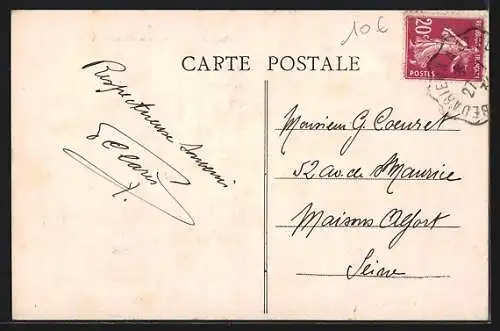 10€
CARTE POSTALE
20c
POSTES
BÉDARIE
27
Respectueux Souvenir
Monsieur G. Coeuret
52 av. de St Maurice
Maisons Alfort
Seine